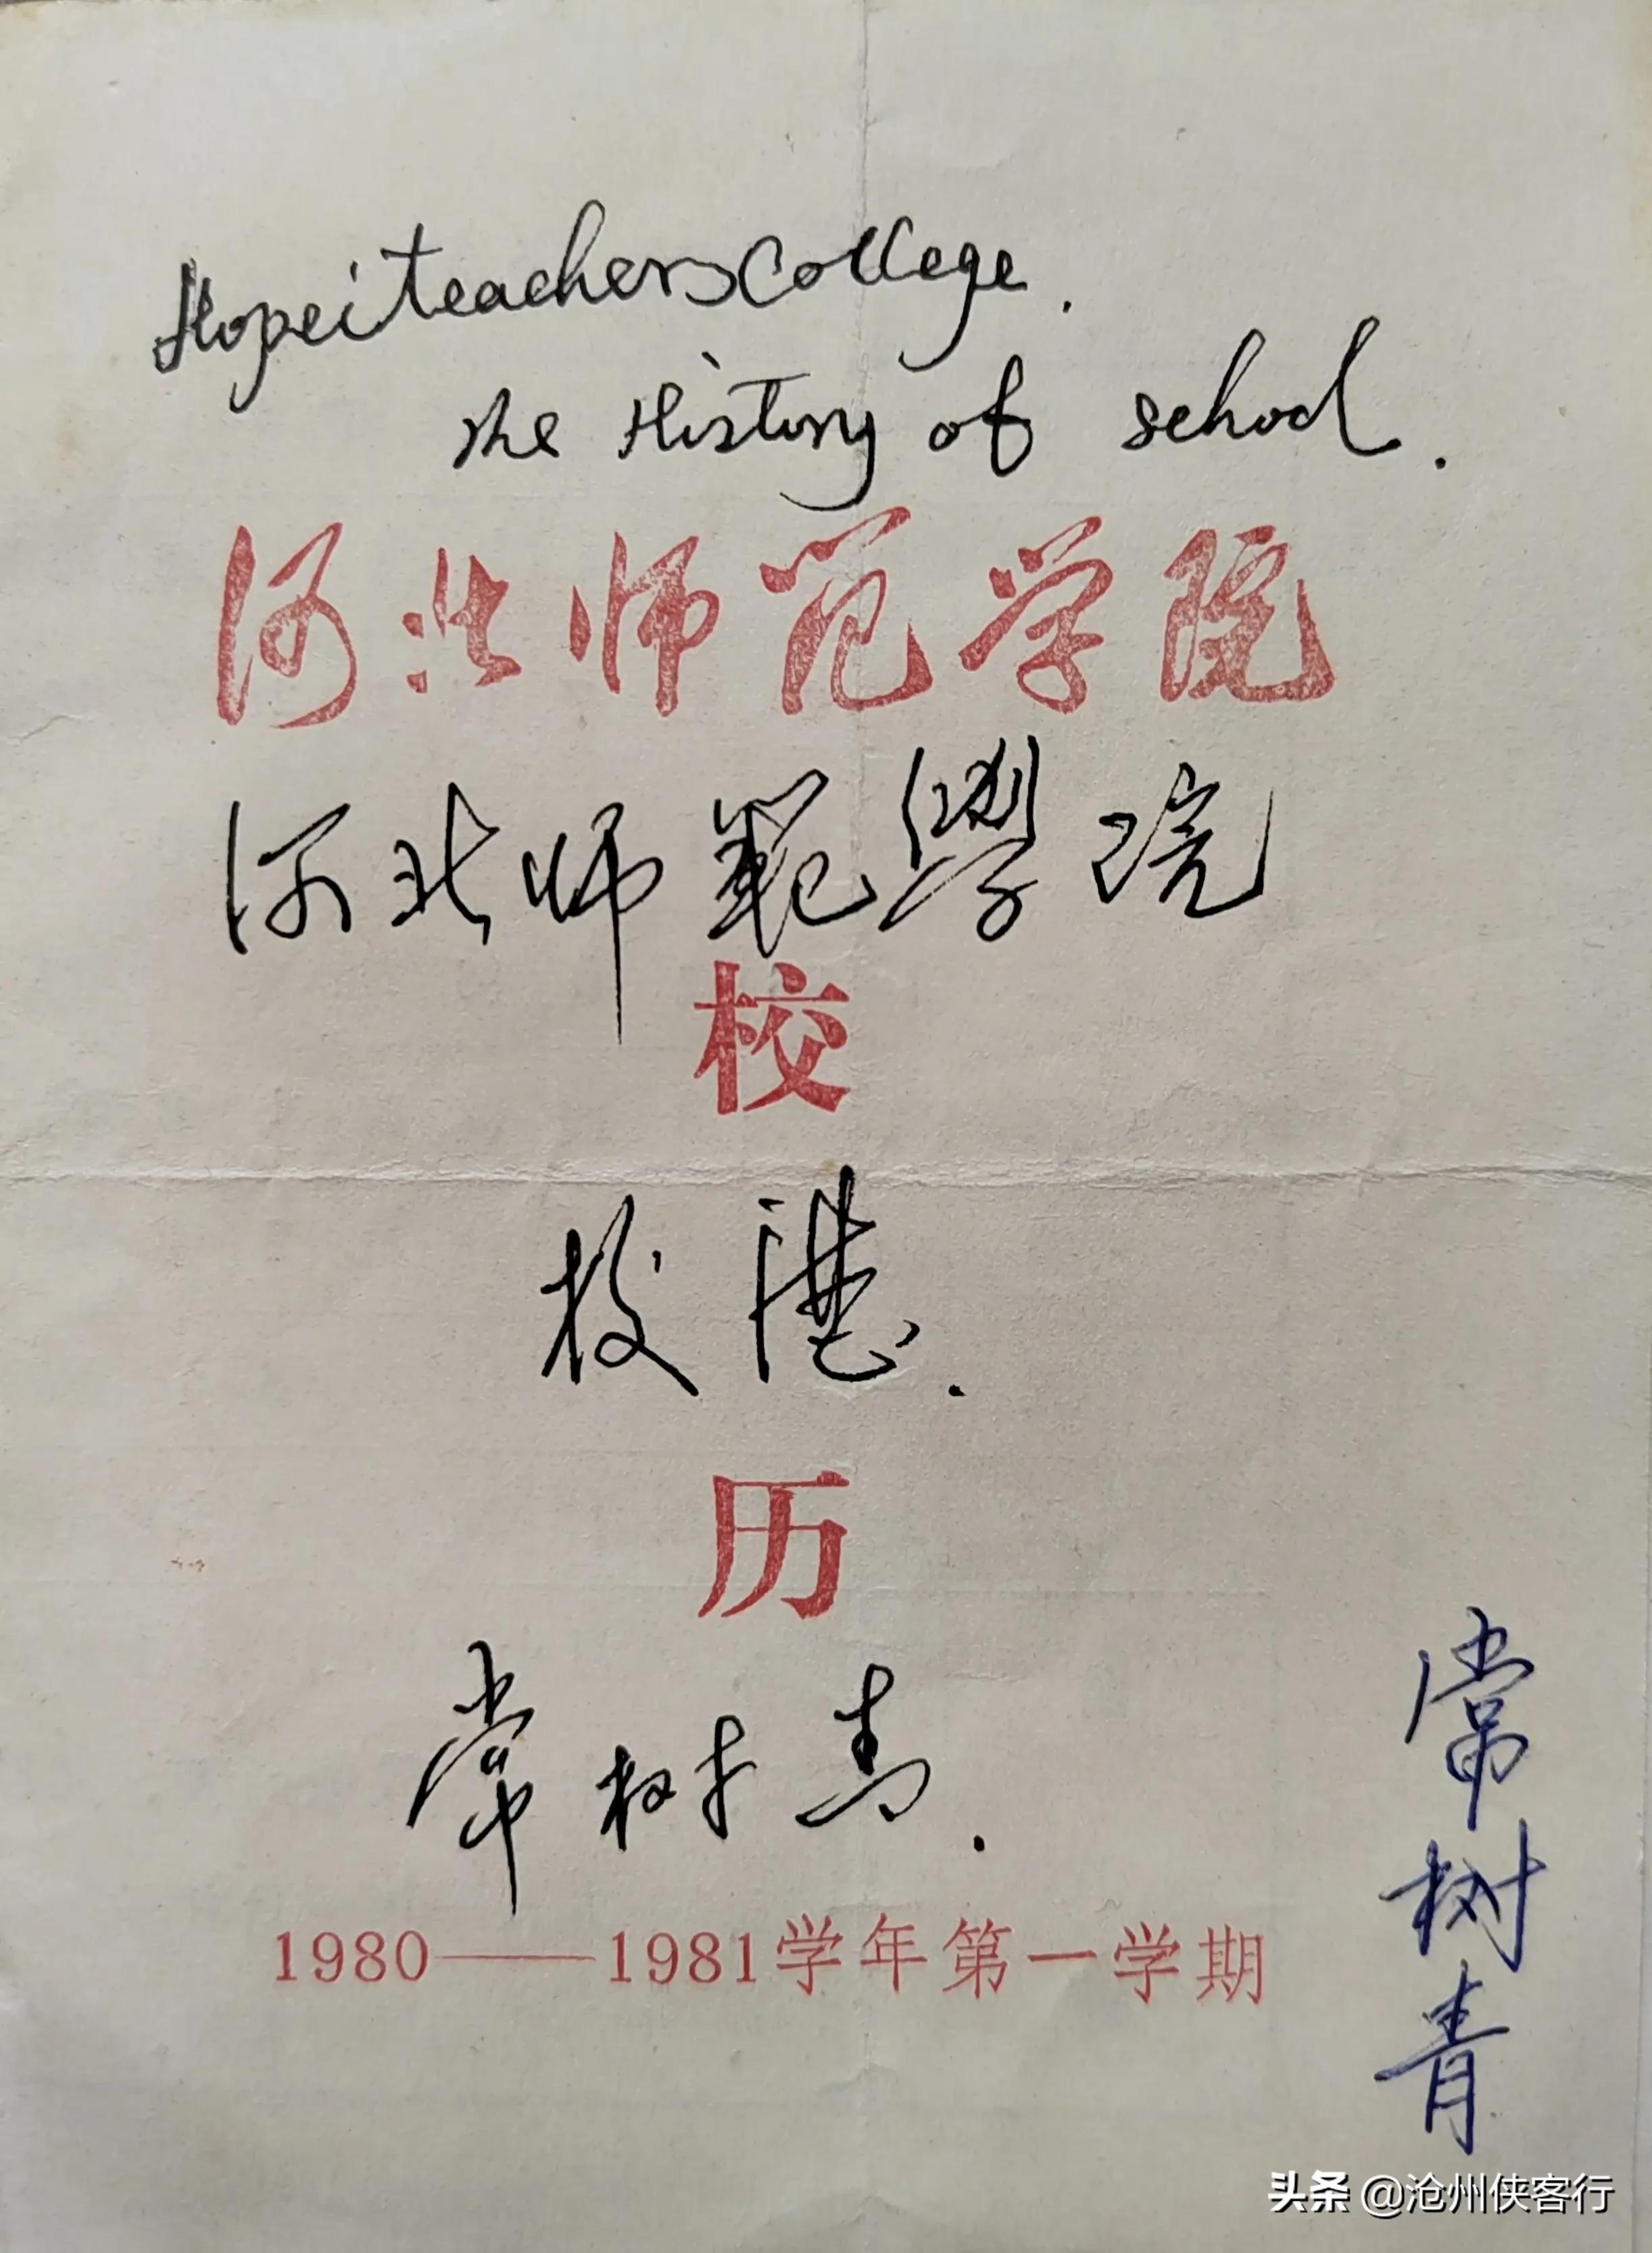 Hopei teachers College.
the History of school.
河北师范学院
河北师範學院
校
校
历
常树青.
1980——1981学年第一学期
常树青
头条 @沧州侠客行